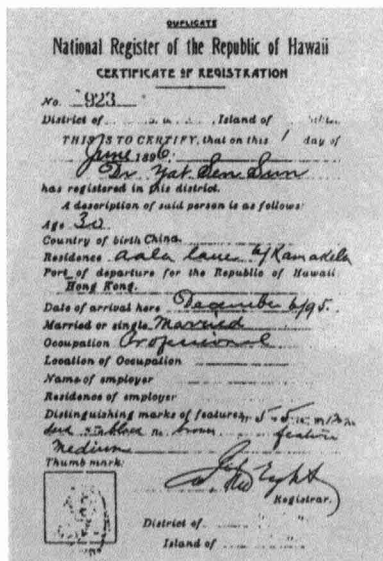 DUPLICATE
National Register of the Republic of Hawaii
CERTIFICATE OF REGISTRATION
No. 923
District of , Island of
THIS IS TO CERTIFY, that on this 1 day of
June 1896.
Dr. Yat Sen Sun
has registered in this district.
A description of said person is as follows:
Age 30
Country of birth China.
Residence Aala Lane
Port of departure for the Republic of Hawaii
Hong Kong.
Date of arrival here December 6/95.
Married or single Married
Occupation Professional
Location of Occupation
Name of employer
Residence of employer
Distinguishing marks of features,
black brown feature
medium
Thumb mark:
Registrar.
District of
Island of